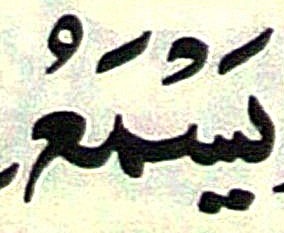 يَسْمَعُ